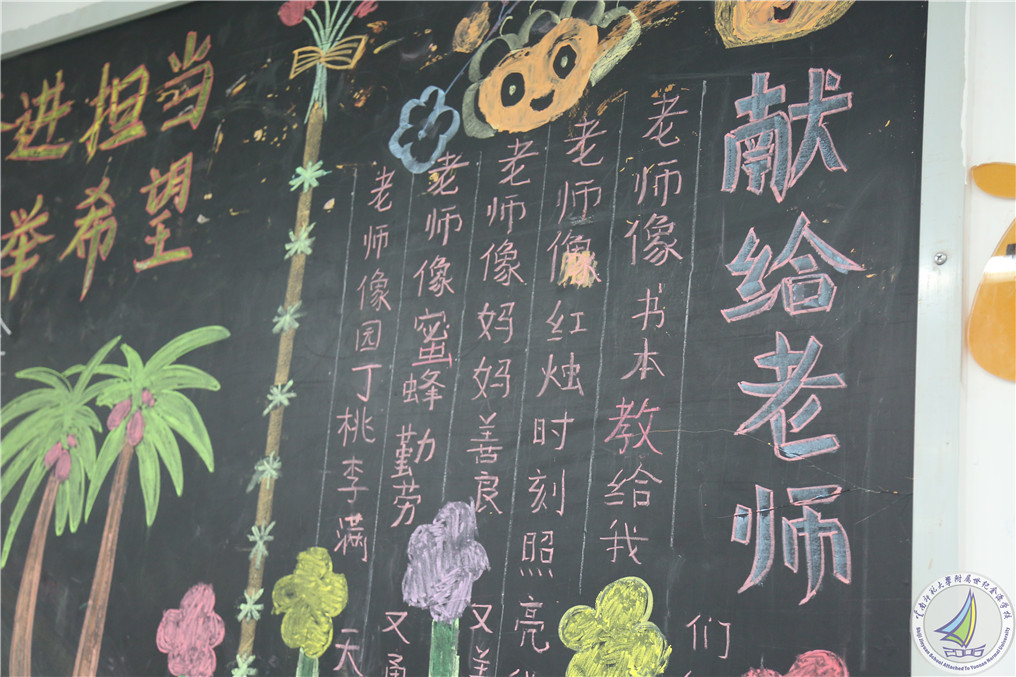 献给老师
们
老师像书本教给我
老师像红烛时刻照亮
老师像妈妈善良又
老师像蜜蜂勤劳又
老师像园丁桃李满天
进担当
举希望
云南师范大學附属世纪金源学校
2006
Shiji Jinyuan School Attached To Yunnan Normal University